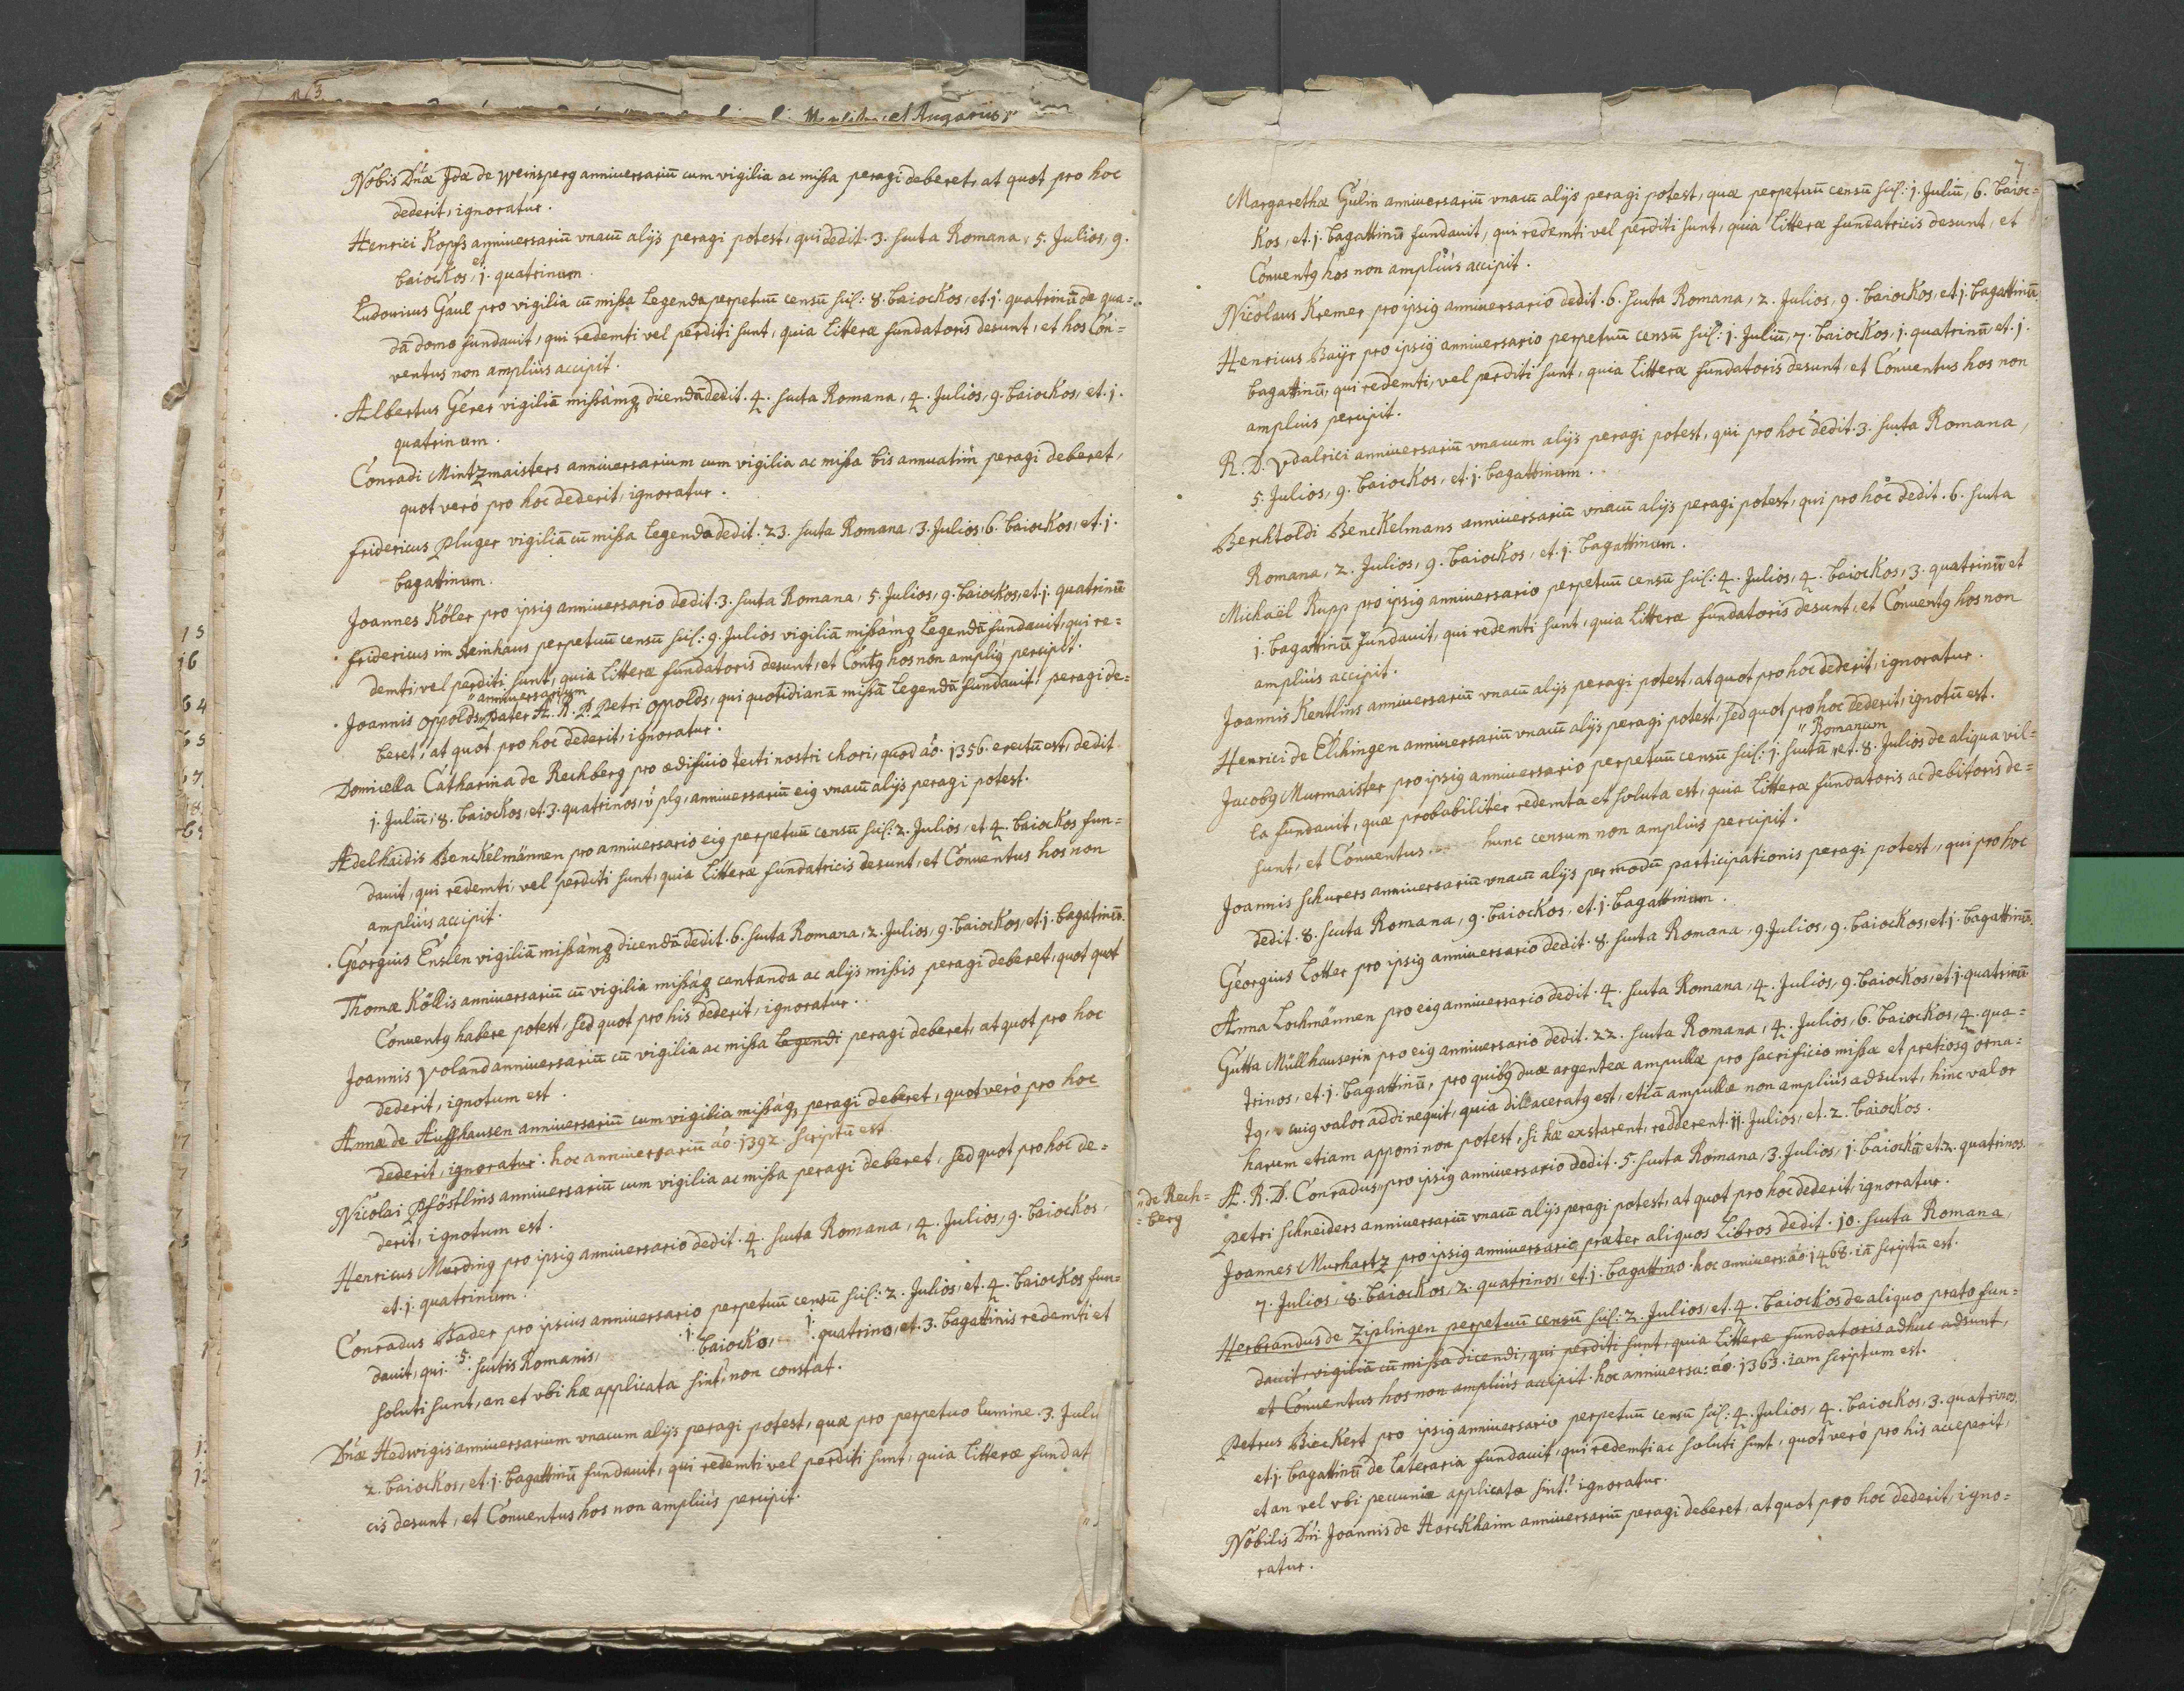 Nobis Dn̄æ Idæ de Weinsperg anniuersariū cum vigilia ac missa peragi deberet, at quot pro hoc
dederit, ignoratur.
Henrici Kopfs anniuersariū vnacū alijs peragi potest, qui dedit. 3. scuta Romana, 5. Julios, 9.
baiockos, et j. quatrinum.
Ludouicus Gaul pro vigilia cū missa legenda perpetuū censū scil: 8. baiockos, et. j. quatrinū de qua=
dā domo fundauit, qui redemti vel perditi sunt, quia litteræ fundatoris desunt, et hos Con=
ventus non ampliùs accipit.
Albertus Gerer vigiliā missàmq dicendā dedit. 4. scuta Romana, 4. Julios, 9. baiockos, et. j.
quatrinum.
Conradi Mintzmaisters anniuersarium cum vigilia ac missa bis annuatim peragi deberet,
quot verò pro hoc dederit, ignoratur.
Fridericus Pluger vigiliā cū missa legenda dedit. 23. scuta Romana, 3. Julios, 6. baiockos, et. j.
bagattinum.
Joannes Köler pro ipsiq anniuersario dedit. 3. scuta Romana, 5. Julios, 9. baiockos, et. j. quatrinū
Fridericus im Steinhaus perpetuū censū scil: 9. Julios vigiliā missàmq legendā fundauit, qui re=
demti, vel perditi sunt, quia litteræ fundatoris desunt, et Contq hos non ampliq percipit.
" anniuersarium
Joannis Oppolds, pater A. R. P. Petri Oppolds, qui quotidianā missā legendā fundauit, peragi de=
beret, at quot pro hoc dederit, ignoratur.
Domicella Catharina de Rechberg pro ædificio tecti nostri chori, quod aō. 1356. erectū est, dedit
j. Juliū, 8. baiockos, et 3. quatrinos, v plq, anniuersariū eiq vnacū alijs peragi potest.
Adelhaidis Benckelmännen pro anniuersario eiq perpetuū censū scil: 2. Julios, et. 4. baiockos fun=
dauit, qui redemti, vel perditi sunt, quia litteræ fundatricis desunt, et Conuentus hos non
ampliùs accipit.
Georgius Enslen vigiliā missàmq dicendā dedit. 6. scuta Romana, 2. Julios, 9. baiockos, et. j. bagatinū.
Thomæ Köllis anniuersariū cū vigilia missàq cantanda ac alijs missis peragi deberet, quot quot
Conuentq habere potest, sed quot pro his dederit, ignoratur.
Joannis Voland anniuersariū cū vigilia ac missa legendi peragi deberet, at quot pro hoc
dederit, ignotum est.
Annæ de Auffhausen anniuersariū cum vigilia missàq peragi deberet, quot verò pro hoc
dederit, ignoratur. hoc anniuersariū aō. 1392. scriptū est.
Nicolai Pföstlins anniuersariū cum vigilia ac missa peragi deberet, sed quot pro hoc de=
derit, ignotum est.
Henricus Murding pro ipsiq anniuersario dedit. 4. scuta Romana, 4. Julios, 9. baiockos,
et. j. quatrinum.
Conradus Bader pro ipsius anniuersario perpetuū censū scil: 2. Julios, et. 4. baiockos fun=
dauit, qui. 5. scutis Romanis, j. baiocko, j. quatrino, et. 3. bagattinis redemti et
soluti sunt, an et vbi hæ applicata sint, non constat.
Dn̄æ Hedwigis anniuersarium vnacum alijs peragi potest, quæ pro perpetuo lumine. 3. Juli
2. baiockos, et. j. bagattinū fundauit, qui redemti vel perditi sunt, quia litteræ fundat
cis desunt, et Conuentus hos non ampliùs percipit.
7
Margarethæ Gulin anniuersariū vnacū alijs peragi potest, quæ perpetuū censū scil: j. Juliū, 6. baioc=
kos, et. j. bagattinū fundauit, qui redemti vel perditi sunt, quia litteræ fundatricis desunt, et
Conuentq hos non ampliùs accipit.
Nicolaus Kremer pro ipsiq anniuersario dedit. 6. scuta Romana, 2. Julios, 9. baiockos, et j. bagattinū.
Henricus Bayr pro ipsiq anniuersario perpetuū censū scil: j. Juliū, 7. baiockos, j. quatrinū, et. j.
bagattinū, qui redemti, vel perditi sunt, quia litteræ fundatoris desunt, et Conuentus hos non
amplius percipit.
R. D. Vdalrici anniuersariū vnacum alijs peragi potest, qui pro hoc dedit. 3. scuta Romana,
5. Julios, 9. baiockos, et. j. bagattinum.
Berchtoldi Benckelmans anniuersariū vnacū alijs peragi potest, qui pro hoc dedit. 6. scuta
Romana, 2. Julios, 9. baiockos, et. j. bagattinum.
Michaël Rupp pro ipsiq anniuersario perpetuū censū scil: 4. Julios, 4. baiockos, 3. quatrinū et
j. bagattinū fundauit, qui redemti sunt, quia litteræ fundatoris desunt, et Conuentq hos non
ampliùs accipit.
Joannis Kentlins anniuersariū vnacū alijs peragi potest, at quot pro hoc dederit, ignoratur.
Henrici de Elchingen anniuersariū vnacū alijs peragi potest, sed quot pro hoc dederit, ignotū est.
" Romanum
Jacobq Murmaister pro ipsiq anniuersario perpetuū censū scil: j. scutū, et. 8. Julios de aliqua vil=
la fundauit, quæ probabilitèr redemta et soluta est, quia litteræ fundatoris ac debitoris de=
sunt, et Conuentus hunc censum non ampliùs percipit.
Joannis Schurers anniuersariū vnacū alijs per modū participationis peragi potest, qui pro hoc
dedit. 8. scuta Romana, 9. baiockos, et. j. bagattinum.
Georgius Lotter pro ipsiq anniuersario dedit. 8. scuta Romana, 9. Julios, 9. baiockos, et j. bagattinū.
Anna Lochmännen pro eiq anniuersario dedit. 4. scuta Romana, 4. Julios, 9. baiockos, et. j. quatrinū
Gutta Müllhauserin pro eiq anniuersario dedit. 22. scuta Romana, 4. Julios, 6. baiockos, 4. qua=
trinos, et. j. bagattinū, pro quibq duæ argenteæ ampullæ pro sacrificio missæ et pretiosq orna=
tq, cuiq valor addi nequit, quia dillaceratq est, etiā ampullæ non ampliùs adsunt, hinc valor
harum etiam apponi non potest, si hæ exstarent, redderent. 11. Julios, et. 2. baiockos.
" de Rech=
= berg
A. R. D. Conradus, pro ipsiq anniuersario dedit. 5. scuta Romana, 3. Julios, j. baiockū et. 2. quatrinos.
Petri Schneiders anniuersariū vnacū alijs peragi potest, at quot pro hoc dederit, ignoratur.
Joannes Murhartz pro ipsiq anniuersario præter aliquos libros dedit. 10. scuta Romana,
7. Julios, 8. baiockos, 2. quatrinos, et. j. bagattino. hoc anniuers: aō. 1468. iā scriptū est.
Herbrandus de Ziplingen perpetuū censū scil: 2. Julios, et. 4. baiockos de aliquo prato fun=
dauit, vigiliā cū missa dicendi, qui perditi sunt, quia litteræ fundatoris adhuc adsunt,
et Conuentus hos non ampliùs accipit. hoc anniuersa: aō. 1363. iam scriptum est.
Petrus Bieckert pro ipsiq anniuersario perpetuū censū scil: 4. Julios, 4. baiockos, 3. quatrinos,
et j. bagattinū de lateraria fundauit, qui redemti ac soluti sunt, quot verò pro his acceperit,
et an vel vbi pecuniæ applicatæ sint? ignoratur.
Nobilis Dn̄i Joannis de Horckhaim anniuersariū peragi deberet, at quot pro hoc dederit, igno=
ratur.